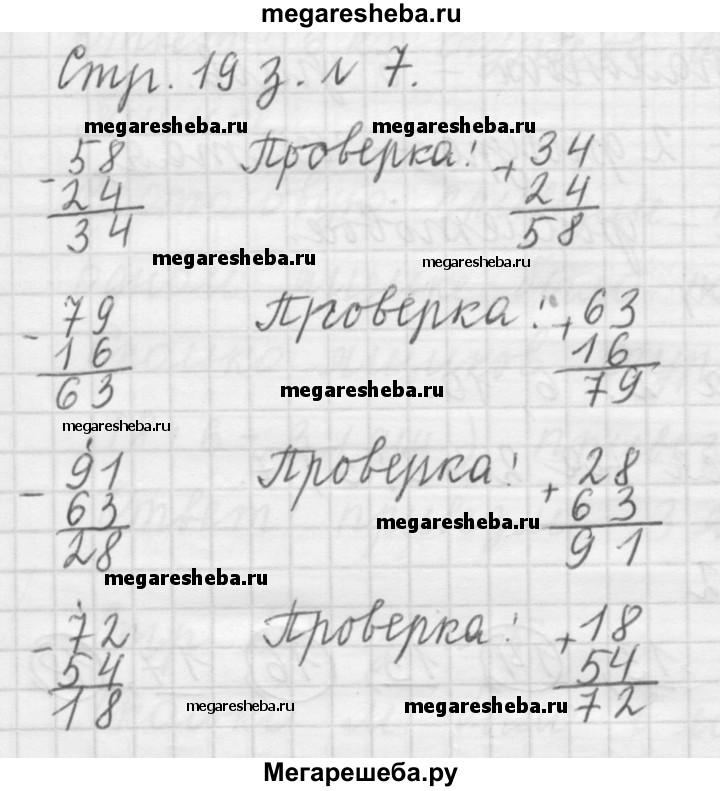 megaresheba.ru
Стр. 19 з. № 7.
megaresheba.ru megaresheba.ru
58 Проверка: + 34
- 24 24
34 58
megaresheba.ru megaresheba.ru
79 Проверка: + 63
- 16 16
63 79
megaresheba.ru
megaresheba.ru
91 Проверка: 28
- 63 + 63
28 91
megaresheba.ru
megaresheba.ru
- 72 Проверка: + 18
54 54
18 72
megaresheba.ru megaresheba.ru
Мегарешеба.ру